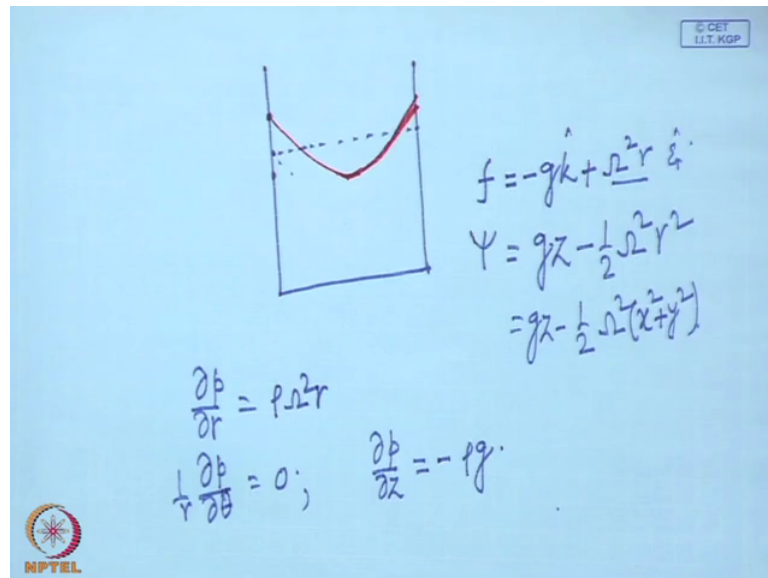 © CET
I.I.T. KGP
f = -gk̂ + Ω²r ε̂r
Ψ = gz - 1/2 Ω²r²
= gz - 1/2 Ω²(x²+y²).
∂p/∂r = ρΩ²r
1/r ∂p/∂θ = 0; ∂p/∂z = -ρg.
NPTEL